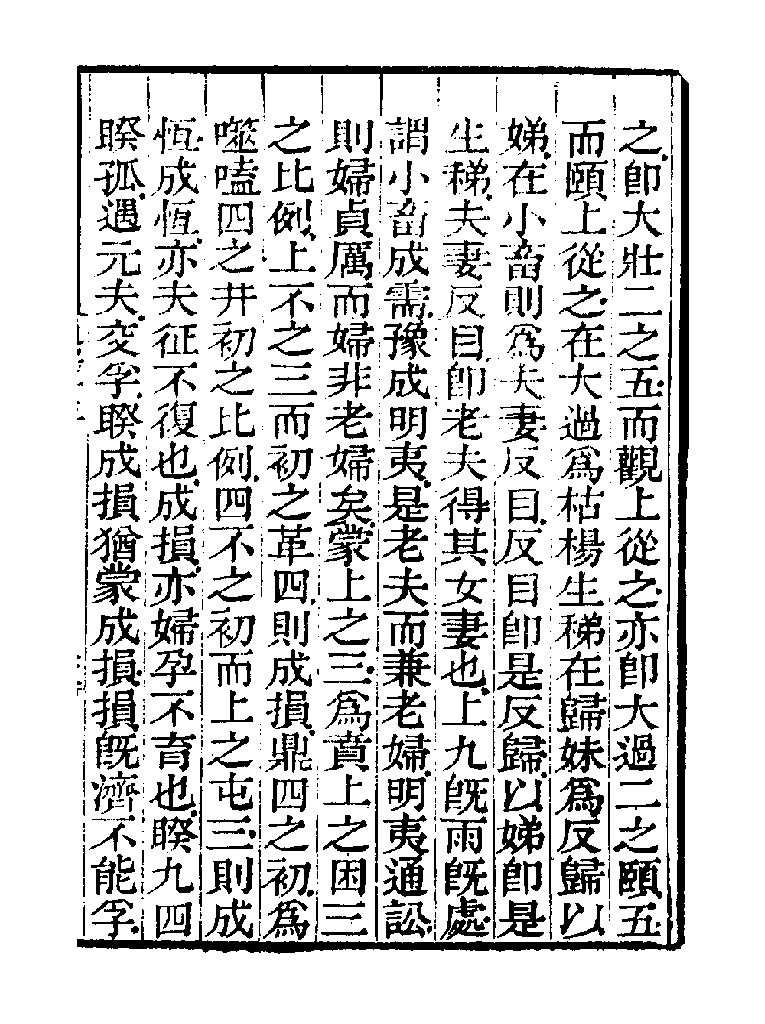 之卽大壯二之五而觀上從之亦卽大過二之頤五
而頤上從之在大過爲枯楊生稊在歸妹爲反歸以
娣在小畜則爲夫妻反目反目卽是反歸以娣卽是
生稊夫妻反目卽老夫得其女妻也上九旣雨旣處
謂小畜成需豫成明夷是老夫而兼老婦明夷通訟
則婦貞厲而婦非老婦矣蒙上之三爲賁上之困三
之比例上不之三而初之革四則成損鼎四之初爲
噬嗑四之井初之比例四不之初而上之屯三則成
恆成恆亦夫征不復也成損亦婦孕不育也睽九四
睽孤遇元夫交孚睽成損猶蒙成損損旣濟不能孚